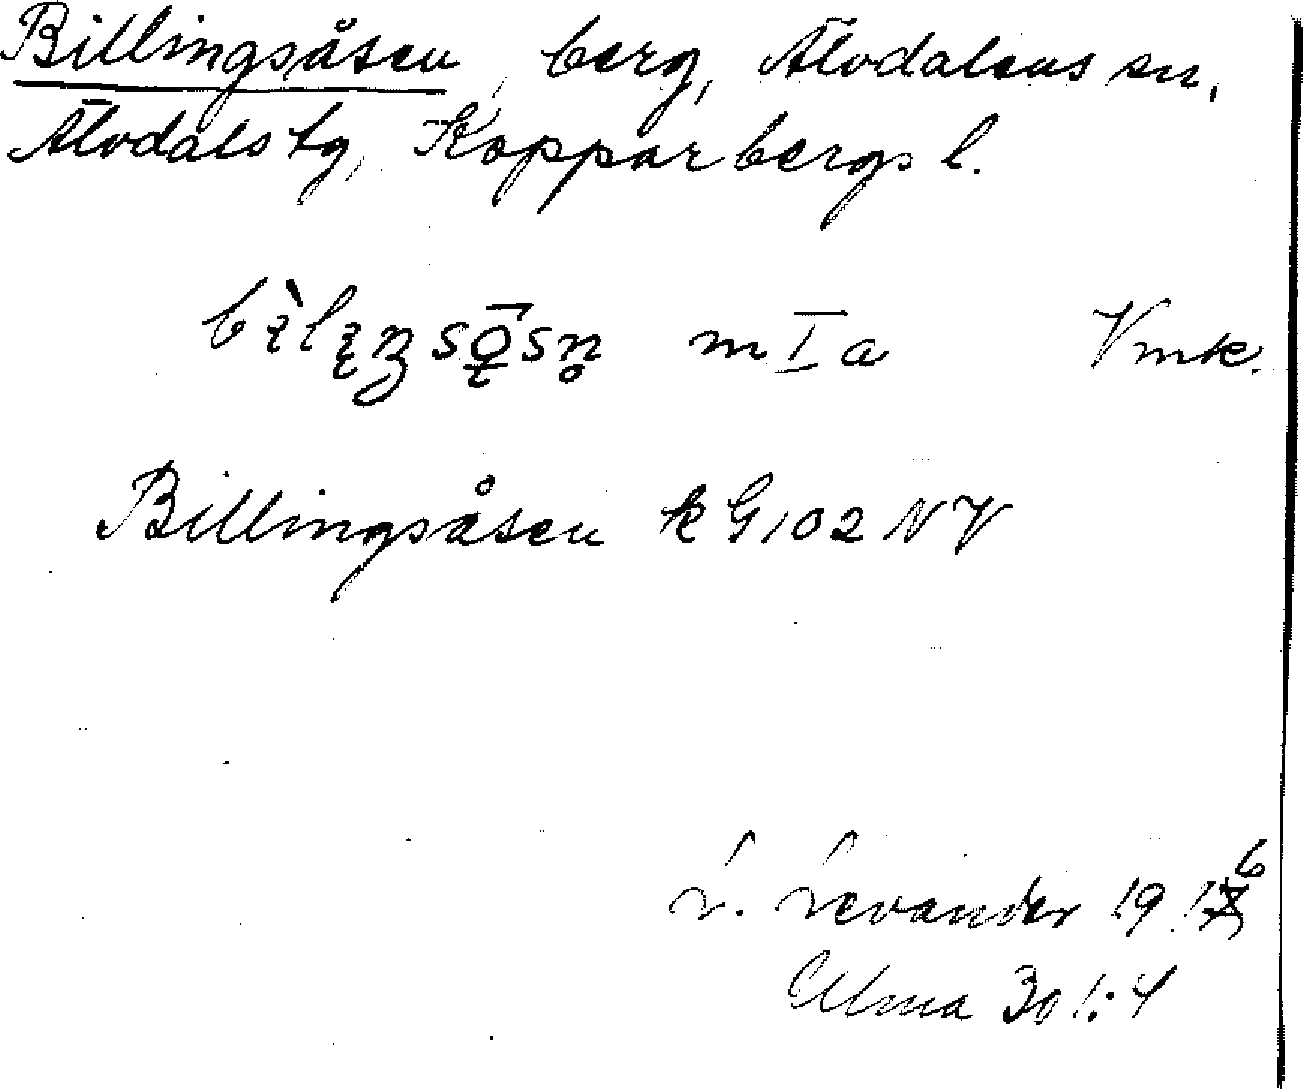 Billingsåsen, berg, Älvdalens sn,
Älvdals tg, Kopparbergs l.
m I a Vmk.
Billingsåsen k G 102 NV
L. Levander 1916
Ulma 301:4